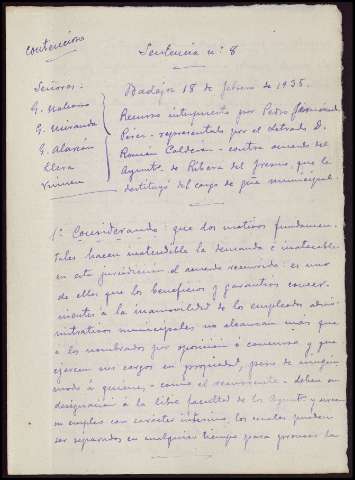 Contencioso
Sentencia nº 8
Señores.
G. Moleano
G. Miranda
G. Alarcón
Llera
Badajoz 18 de febrero de 1935.
Recurso interpuesto por Pedro
Pérez - representado por el letrado D.
Román Calderón - contra acuerdo del
Ayuntº de Ribera del Fresno, que le
destituyó del cargo de guía municipal.
1º Considerando: que los motivos fundamen-
tales hacen inatendible la demanda e inatacable
en esta jurisdicción el acuerdo recurrido: es uno
de ellos que los beneficios y garantías concer-
nientes a la inamovilidad de los empleados admi-
nistrativos municipales no alcanzan más que
a los nombrados por oposición o concurso, y que
ejercen sus cargos en propiedad, pero de ningún
modo á quienes - como el recurrente - deben su
designación á la libre facultad de los Ayuntºs y sirven
su empleo con carácter interino, los cuales pueden
ser separados en cualquier tiempo para proveer la